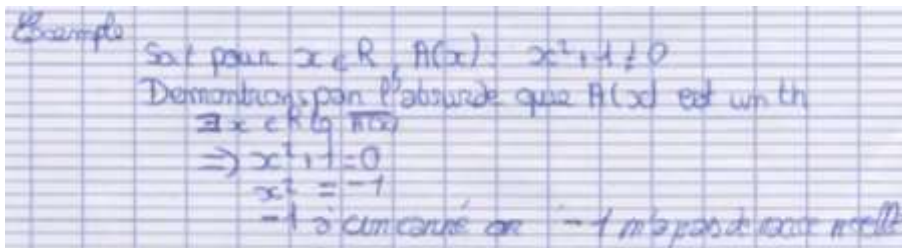 Exemple
Soit pour x ∈ R, A(x) : x² + 1 ≠ 0
Demontrons par l'absurde que A(x) est un th
∃ x ∈ R tq A(x)̅
⇒) x² + 1 = 0
x² = -1
-1 a un carré or -1 n'a pas de racine réelle